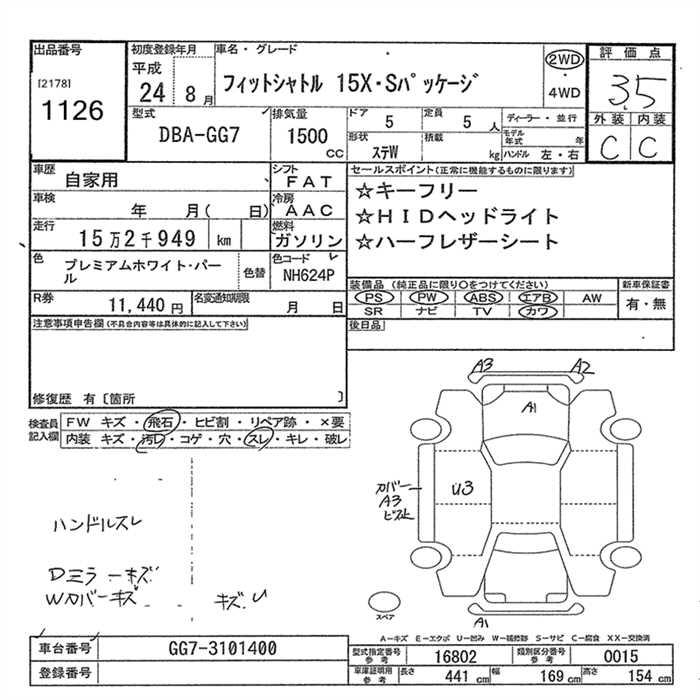 出品番号
[2178]
1126
初度登録年月
平成
24 8月
車名・グレード
フィットシャトル 15X・Sパッケージ
2WD
・
4WD
評価点
3.5
外装 内装
C C
型式
DBA-GG7
排気量
1500
CC
ドア
5
定員
5 人
形状
ステW
積載
kg
ディーラー・並行
モデル年式 年
ハンドル 左・右
車歴
自家用
シフト
FAT
車検
年 月( 日)
冷房
AAC
走行
15万2千949 km
燃料
ガソリン
色
プレミアムホワイト・パール
色替
色コード
NH624P
R券
11,440 円
名変通知期限
月 日
セールスポイント(正常に機能するものに限ります)
☆キーフリー
☆HIDヘッドライト
☆ハーフレザーシート
装備品 (純正品に限り○をつけてください)
PS PW ABS エアB AW
SR ナビ TV カワ
新車保証書
有・無
後日品
注意事項申告欄(不具合内容等は具体的に記入して下さい)
修復歴 有〔箇所 〕
検査員記入欄
FW キズ・飛石・ヒビ割・リペア跡・×要
内装 キズ・汚レ・コゲ・穴・スレ・キレ・破レ
ハンドルスレ
Dミラーキズ
Wカバーキズ
キズU
A3 A2
A1
カバー
A3
ビス止
U3
スペア
A1
A-キズ E-エクボ U-凹ミ W-補修跡 S-サビ C-腐食 XX-交換済
車台番号
GG7-3101400
登録番号
型式指定番号 参考
16802
類別区分番号 参考
0015
車庫証明用 参考
長さ 441 cm
幅 169 cm
高さ 154 cm